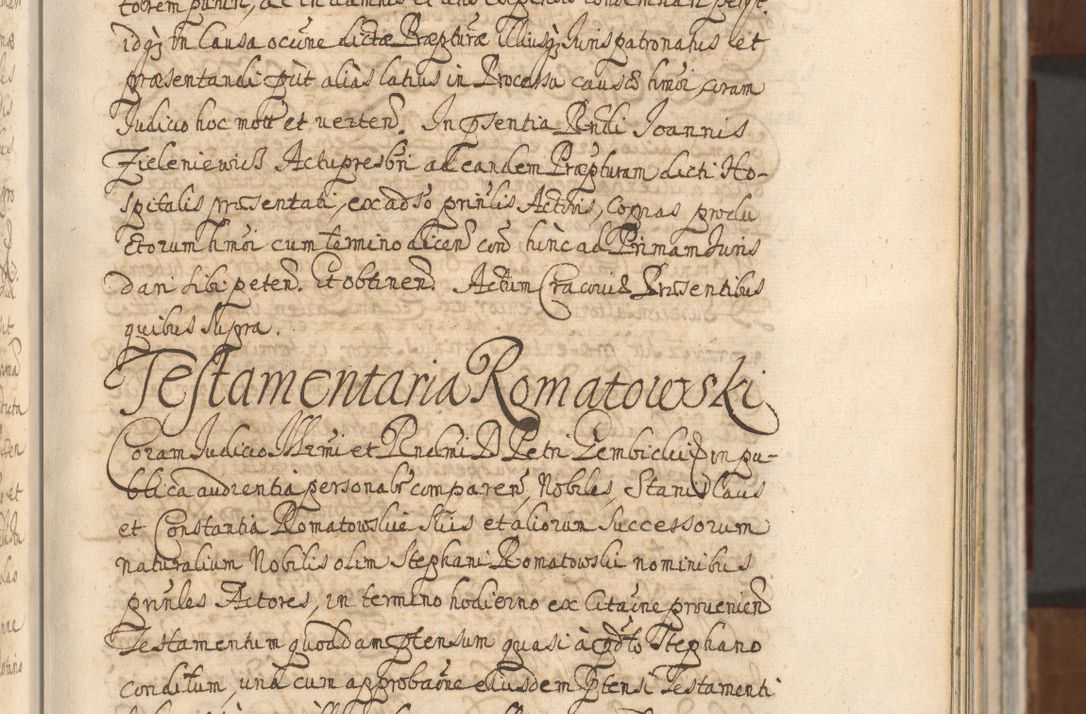 torem puniri, ac in damnis et
idq; in Causa occne dictæ Præpturæ Illiusq; Jurispatronatus et
præsentandi put alias latius in Processu causæ hmoi coram
Judicio hoc mott et verten. In psentia Rndi Joannis
Zieleniewicz Actu presbri ad eandem Præpturam dicti Ho-
spitalis præsentati, ex adso prinlis Actoris, Copias produ
ctorum hmoi cum termino dicen con hinc ad Primam Juris
dari sibi peten. Et obtinen. Actum Cracoviæ Præsentibus
quibus supra.
Testamentaria Romatowski
Coram Judicio Illrmi et Rndmi D Petri Gembicki in pu-
blica audientia personalr comparen, Nobiles, Stanislaus
et Constantia Romatowskie suis et aliorum Successorum
naturalium Nobilis olim Stephani Romatowski nominibus
prinles Actores, in termino hodierno ex Citaone provenien
Testamentum quoddam ptensum quasi à pdto Stephano
conditum, unà cum approbaone eiusdem ptensi Testamenti